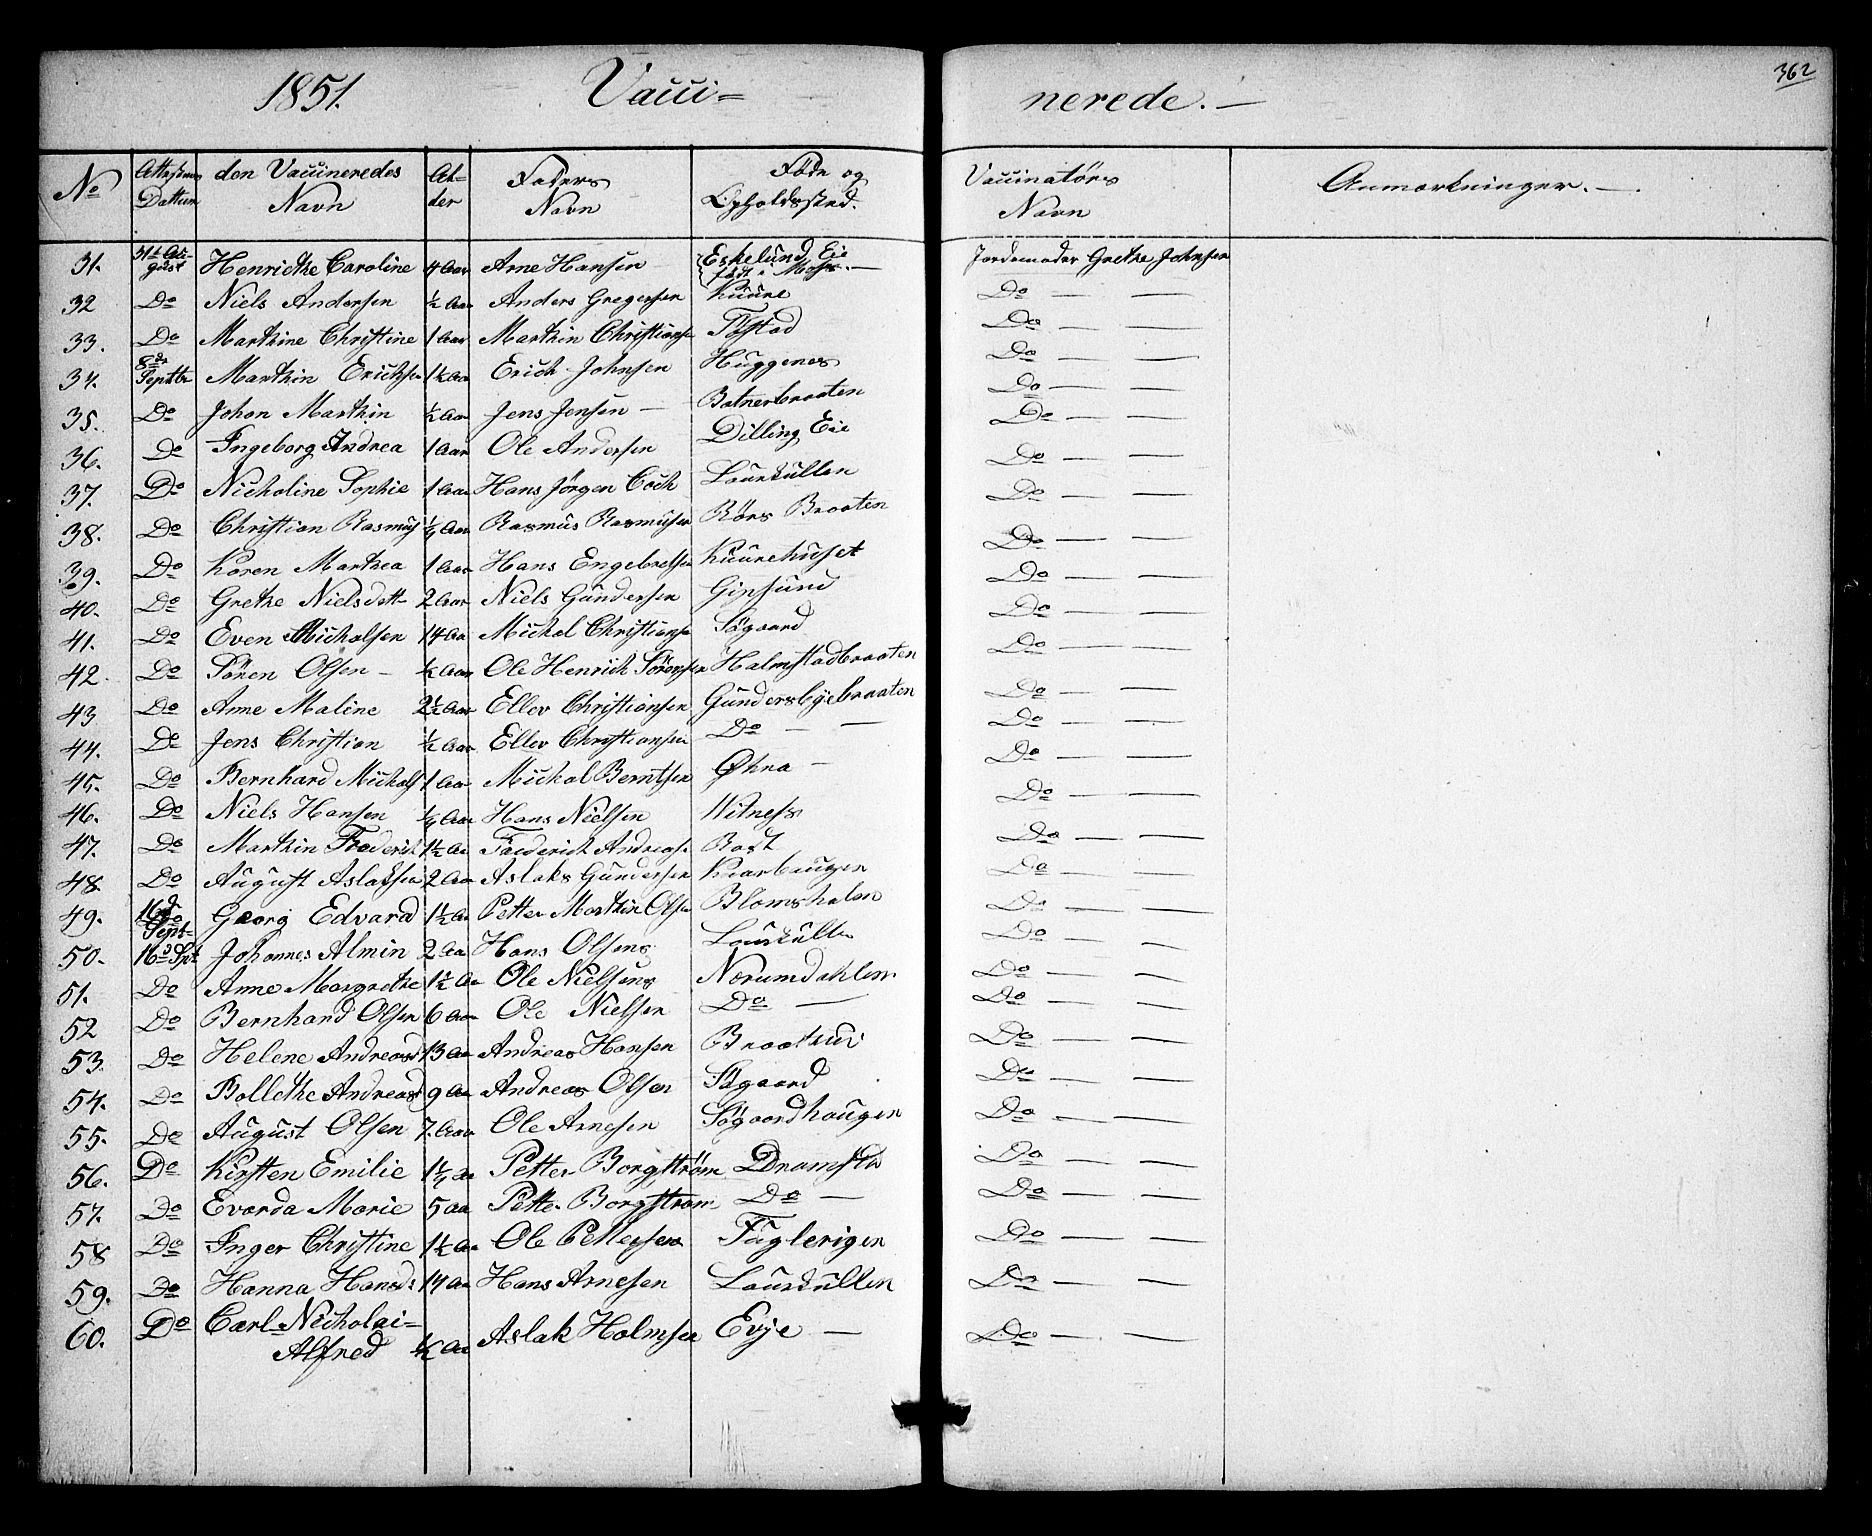 362
1851. Vacci= nerede. —
No Attestens Dattum den Vaccineredes Navn Al- der Faders Navn Føde og Opholdssted. Vaccinatørs Navn Anmærkninger. —
31. 31te Au- gust Henriethe Caroline 4 Aar Arne Hansen Eskelund Eie født i Moss. — Jordemoder Grethe Johnsen
32 Do Niels Andersen ½ Aar Anders Gregersen Kuure Do — —
33. Do Marthine Christine 1 Aar Marthin Christians Tystad Do — —
34. 8de Septbr Marthin Erichsen 1½ Aar Erich Johnsen Huggenes Do — —
35. Do Johan Marthin ½ Aar Jens Jensen — Botnerbraaten Do — —
36. Do Ingeborg Andrea 1 Aar Ole Andersen Dilling Eie Do — —
37. Do Nicholine Sophie 1 Aar Hans Jørgen Coch Laurkullen Do — —
38. Do Christian Rasmus ½ Aar Rasmus Rasmusen Rørs Braaten Do — —
39. Do Karen Marthea 1 Aar Hans Engebretsen Kuurehuset Do — —
40. Do Grethe Nielsdatt- 2 Aar Niels Gundersen Gipsund Do — —
41. Do Even Michalsen 14 Aar Michal Christians Søgaard Do — —
42. Do Søren Olsen — ½ Aar Ole Henrich Sørensen Halmstadbraaten Do — —
43 Do Anne Maline 2½ Aar Ellev Christiansen Gundersbyebraaten Do — —
44. Do Jens Christian ½ Aar Ellev Christiansen Do — — Do — —
45. Do Bernhard Michals 1 Aar Michal Berntsen Økna — Do — —
46. Do Niels Hansen ½ Aar Hans Nielsen Witness Do — —
47. Do Marthin Frederich 1½ Aa Frederich Andreas. Rast Do — —
48. Do August Aslaksen 2 Aar Aslaks Gundersen Kaarhaugen Do — —
49. 16d Sept- Georg Edvard 1½ Aa Petter Marthin Olsen Blomsholm Do — —
50. 16d Spt Johannes Almin 2 Aa Hans Olsens Laurkullen Do — —
51. Do Anne Margrethe 1½ Aar Ole Nielsens Norumdahlen Do — —
52 Do Bernhard Olsen 6 Aar Ole Nielsen Do — Do — —
53. Do Helene Andreasd 13 Aa Andreas Hansen Do — —
54. Do Bollethe Andreasd 9 Aa Andreas Olsen Søgaard Do — —
55. Do August Olsen 7. Aar Ole Arnesen Søgaardhaugen Do — —
56. Do Kirsten Emilie 1½ Aa Petter Borgstrøm Dramstá Do — —
57. Do Evarda Marie 5 Aa Petter Borgstrøm Do — Do — —
58 Do Inger Christine 1½ Aa Ole Pettersen Fuglevigen Do — —
59. Do Hanna Hansd: 14 Aa Hans Arnesen Laurkullen Do — —
60. Do Carl Nicholai= Alfred ½ Aa Aslak Holmsen Evje — Do — —